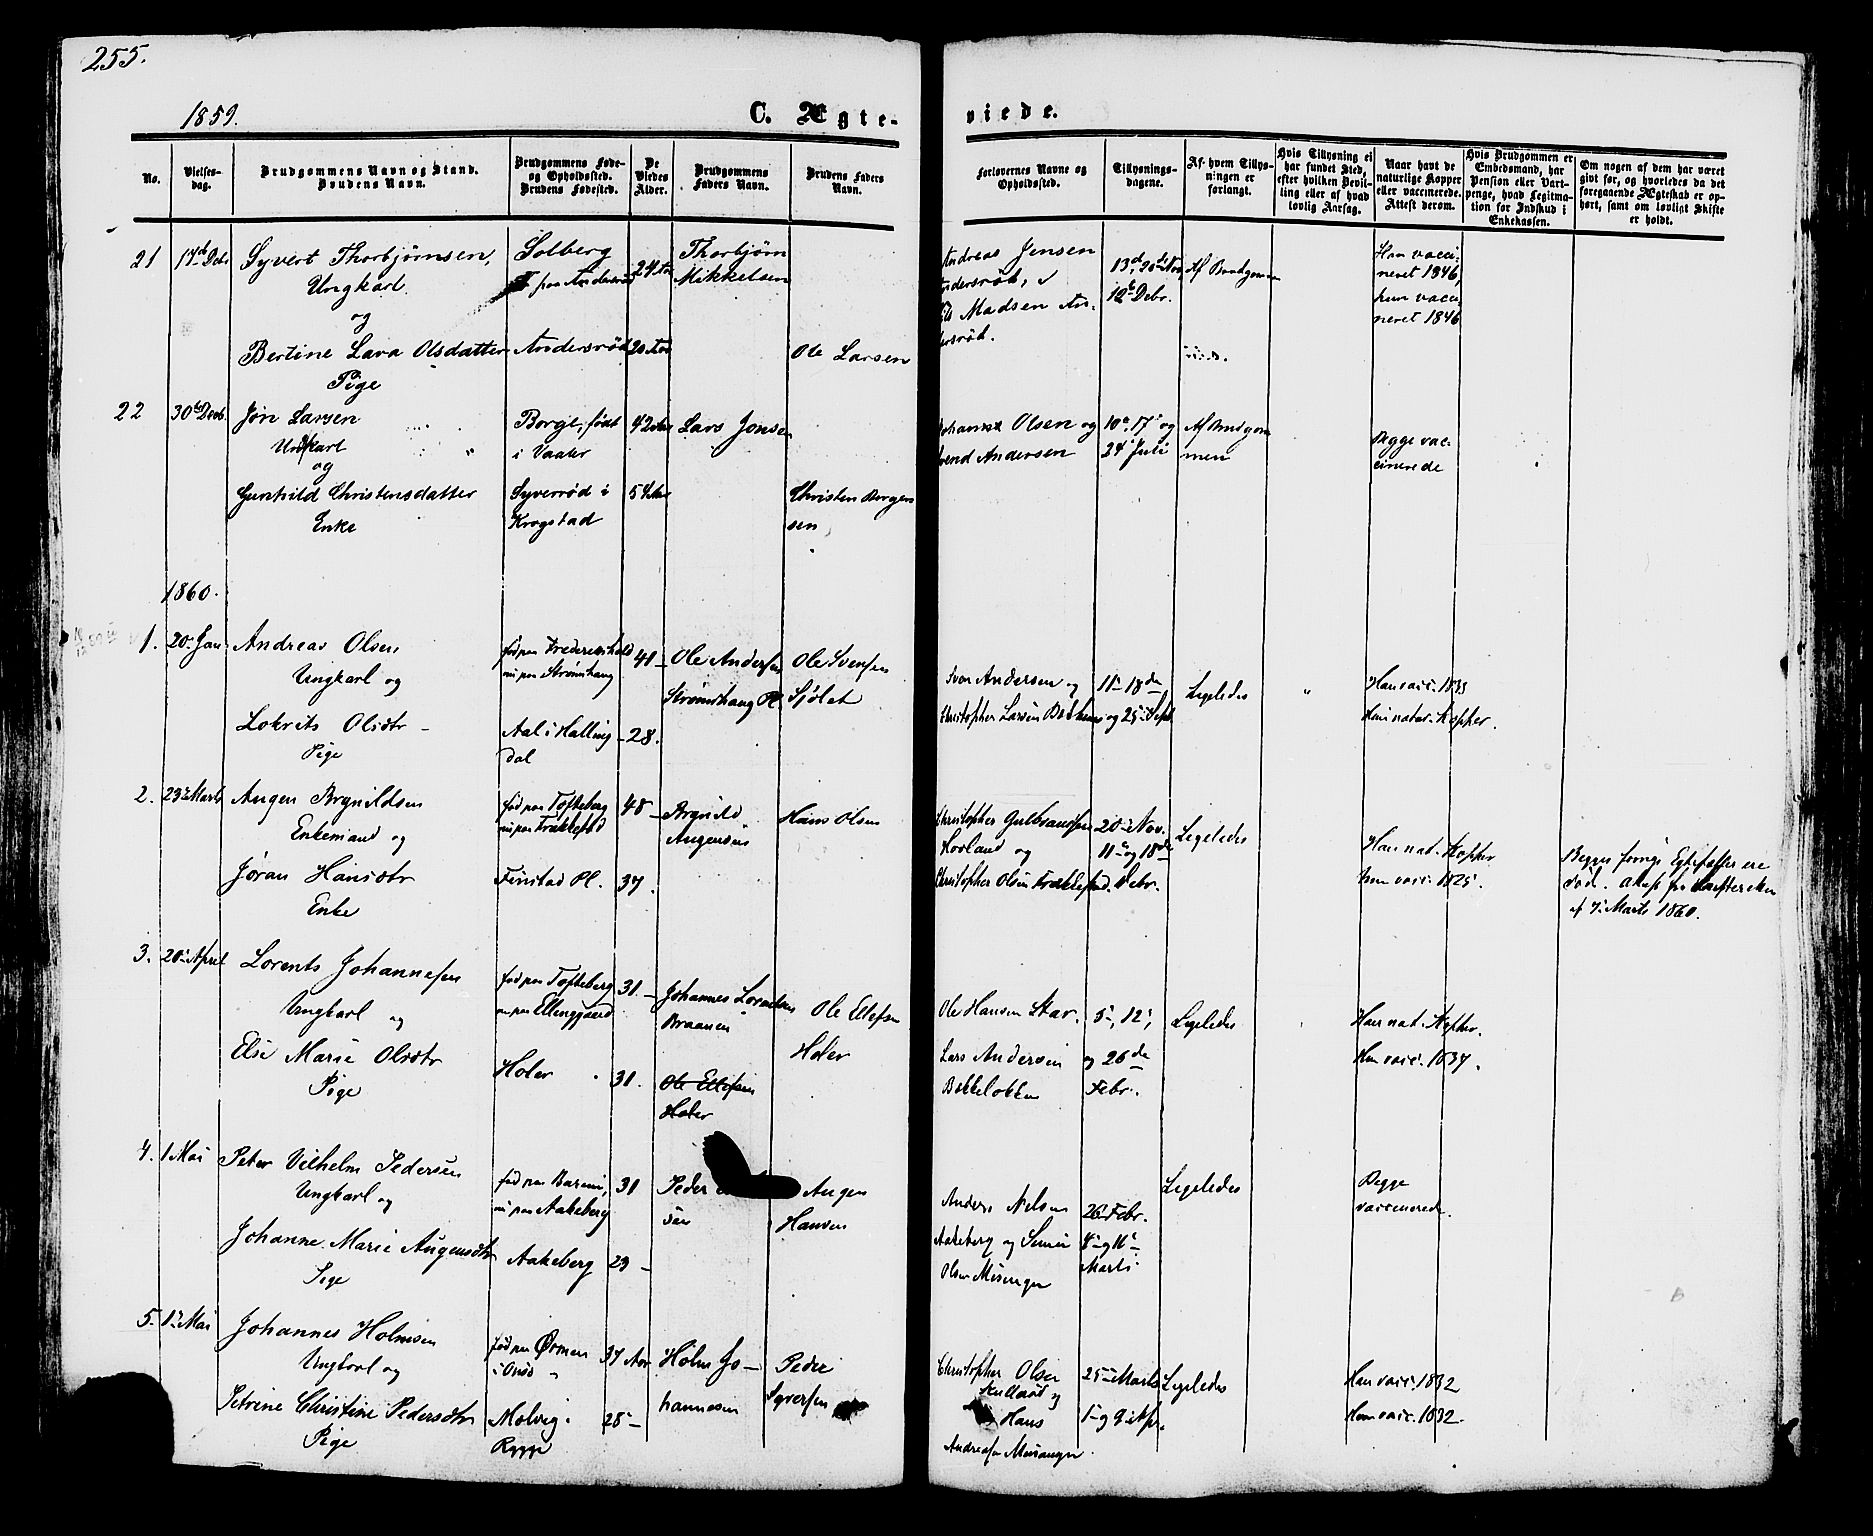 255.
1859.
C. Ægte-
viede.
No.
Vielses-
dag.
Brudgommens Navn og Stand.
Brudens Navn.
Brudgommens Føde-
og Opholdssted.
Brudens Fødested.
De
Viedes
Alder.
Brudgommens
Faders Navn.
Brudens Faders
Navn.
Forlovernes Navne og
Opholdssted.
Tillysnings-
dagene.
Af hvem Tillys-
ningen er
forlangt.
Hvis Tillysning ei
har fundet Sted,
efter hvilken Bevil-
ling eller af hvad
lovlig Aarsag.
Naar havt de
naturlige Kopper
eller vaccinerede.
Attest derom.
Hvis Brudgommen er
Embedsmand, har
Pension eller Vart-
penge, hvad Legitima-
tion for Indskud i
Enkekassen.
Om nogen af dem har været
gift før, og hvorledes da det
foregaaende Ægteskab er op-
hørt, samt om lovligt Skifte
er holdt.
21
17de Debr
Syvert Thorbjørnsen,
Ungkarl
og
Bertine Lava Olsdatter
Pige
Solberg
fra Andersrød
Andersrød
24 Aar
20 Aar
Thorbjørn
Mikkelsen
Ole Larsen
Andreas Jensen
Andersrød,
Madsen An-
dersrød.
13de, 20de Nov
12te Debr.
Af Brudgommen
Han vacci-
neret 1846,
hun vacci-
neret 1846
22
30te Decb.
Jøn Larsen
Ungkarl
og
Gunhild Christensdatter
Enke
Borge, født
i Vaaler
Syverød i
Krogstad
42 Aar
54 Aar
Lars Jonsen
Christen Borgers
sen
Johannes Olsen og
Svend Andersen
10de, 17de og
24de Juli
Af Brudgom
men
Begge vac-
cinerede
1860.
1.
20. Jan
Andreas Olsen
Ungkarl og
Lokrits Olsdtr
Pige
fød paa Frederikshald
nu paa Strømhaug
Aal i Halling
dal
41
28.
Ole Andersen
Strømhaug Pl.
Ole Svensen
Sjølet
Ivar Andersen og
Christopher Larsen
11te 18de
og 25de Sept.
Ligeledes
"
Han vacc. 1833
Hun natur. Kopper.
2.
23de Marts
Augen Brynildsen
Enkemand og
Jøran Hansdtr
Enke
fød paa Tofteberg
nu paa Frakkestad
Finstad Pl.
48
37.
Brynild
Augensen
Hans Olsen
Christopher Gulbrandsen
Hovland og
Christopher Olsen Frakkestad.
20de Nov.
11te og 18de
Debr.
Ligeledes
Han nat. Kopper
hun vacc. 1825.
Begges forrige Egtefæller ere
død. Attest fra Skifteretten
af 7de Marts 1860.
3.
20de April
Lorents Johannesen
Ungkarl og
Else Marie Olsdtr
Pige
fød paa Tofteberg
nu paa Ellingaard
Holer
31.
31.
Johannes Lorentsen
Braanen
Ole Ellefsen
Holer
Ole Ellefsen
Holer
Ole Hansen Skar.
Lars Andersen
Bekkeløkken
5te, 12te,
og 26de
Febr.
Ligeledes
Han nat. Kopper.
Hun vacc. 1837.
4.
1 Mai
Peter Vilhelm Pedersen
Ungkarl og
Johanne Marie Augensdtr
Pige
nu paa Aakeberg
Aakeberg
31
29
Peder
sen
Augen
Hansen
Anders Nilsen
Aakeberg og
Olsen Misingen
26de Febr.
4de og 11te
Marts
Ligeledes
Begge
vaccinerede.
5.
1ste Mai
Johannes Holmsen
Ungkarl og
Petrine Christine Pedersdtr
Pige
fød paa Ørmen
i Onsø
Molvig i
Rygge
37 Aar
28
Holm Jo-
hannesen
Peder
Syversen
Christopher Olsen
og
Hans
Andreasen Misingen
25de Marts
1ste og 9de Apr.
Ligeledes
Han vacc. 1832
Hun vacc. 1832.